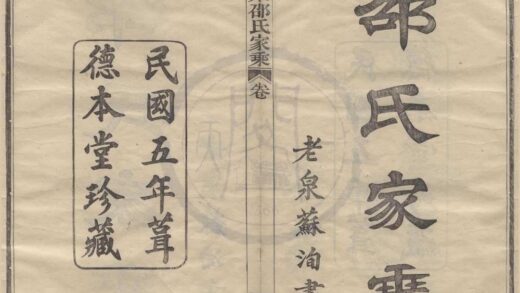 邵氏家乘
老泉蘇洵書
邵氏家乘 卷
民國五年葺
德本堂珍藏